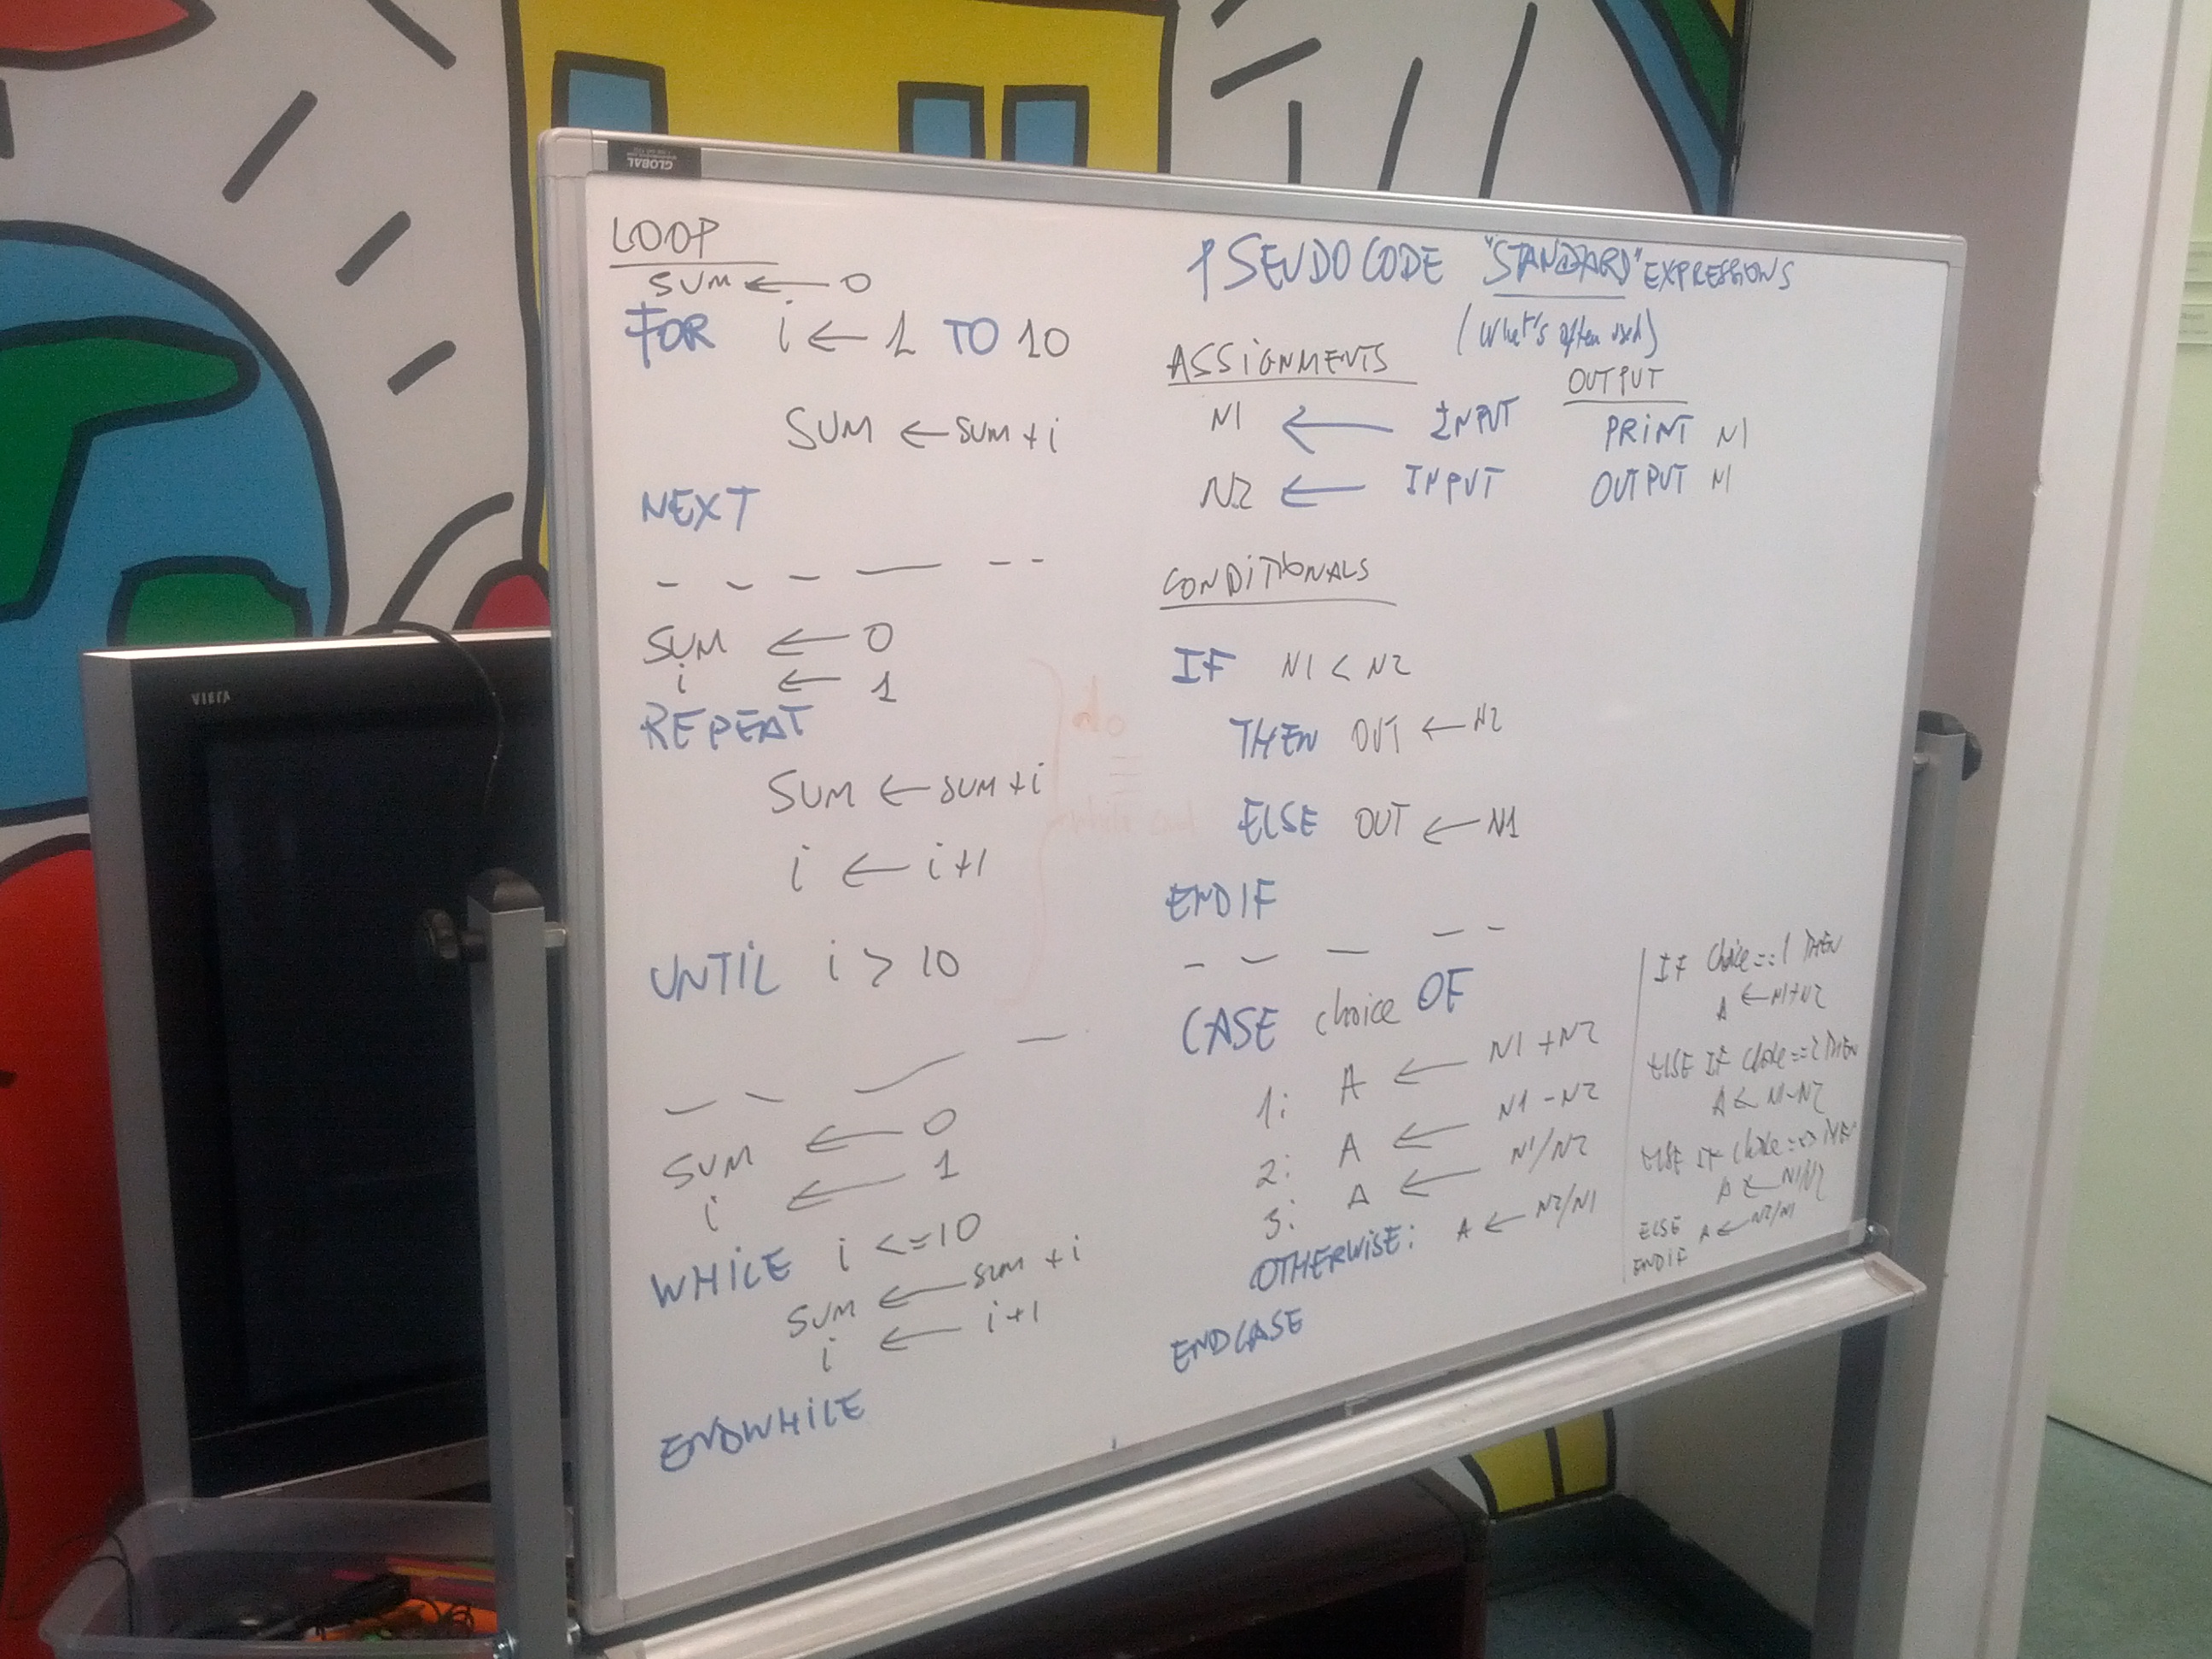 GLOBAL
LOOP
SUM ← 0
FOR i ← 1 TO 10
SUM ← SUM + i
NEXT
SUM ← 0
i ← 1
REPEAT
SUM ← SUM + i
i ← i+1
UNTIL i > 10
SUM ← 0
i ← 1
WHILE i <= 10
SUM ← SUM + i
i ← i+1
ENDWHILE
PSEUDO CODE "STANDARD" EXPRESSIONS
(What's often used)
ASSIGNMENTS
N1 ← INPUT
N2 ← INPUT
OUTPUT
PRINT N1
OUTPUT N1
CONDITIONALS
IF N1 < N2
THEN OUT ← N2
ELSE OUT ← N1
ENDIF
CASE choice OF
1: A ← N1 + N2
2: A ← N1 - N2
3: A ← N1/N2
OTHERWISE: A ← N2/N1
ENDCASE
IF choice == 1 THEN
A ← N1+N2
ELSE IF choice == 2 THEN
A ← N1-N2
ELSE IF choice == 3 THEN
A ← N1/N2
ELSE A ← N2/N1
ENDIF
VIERA